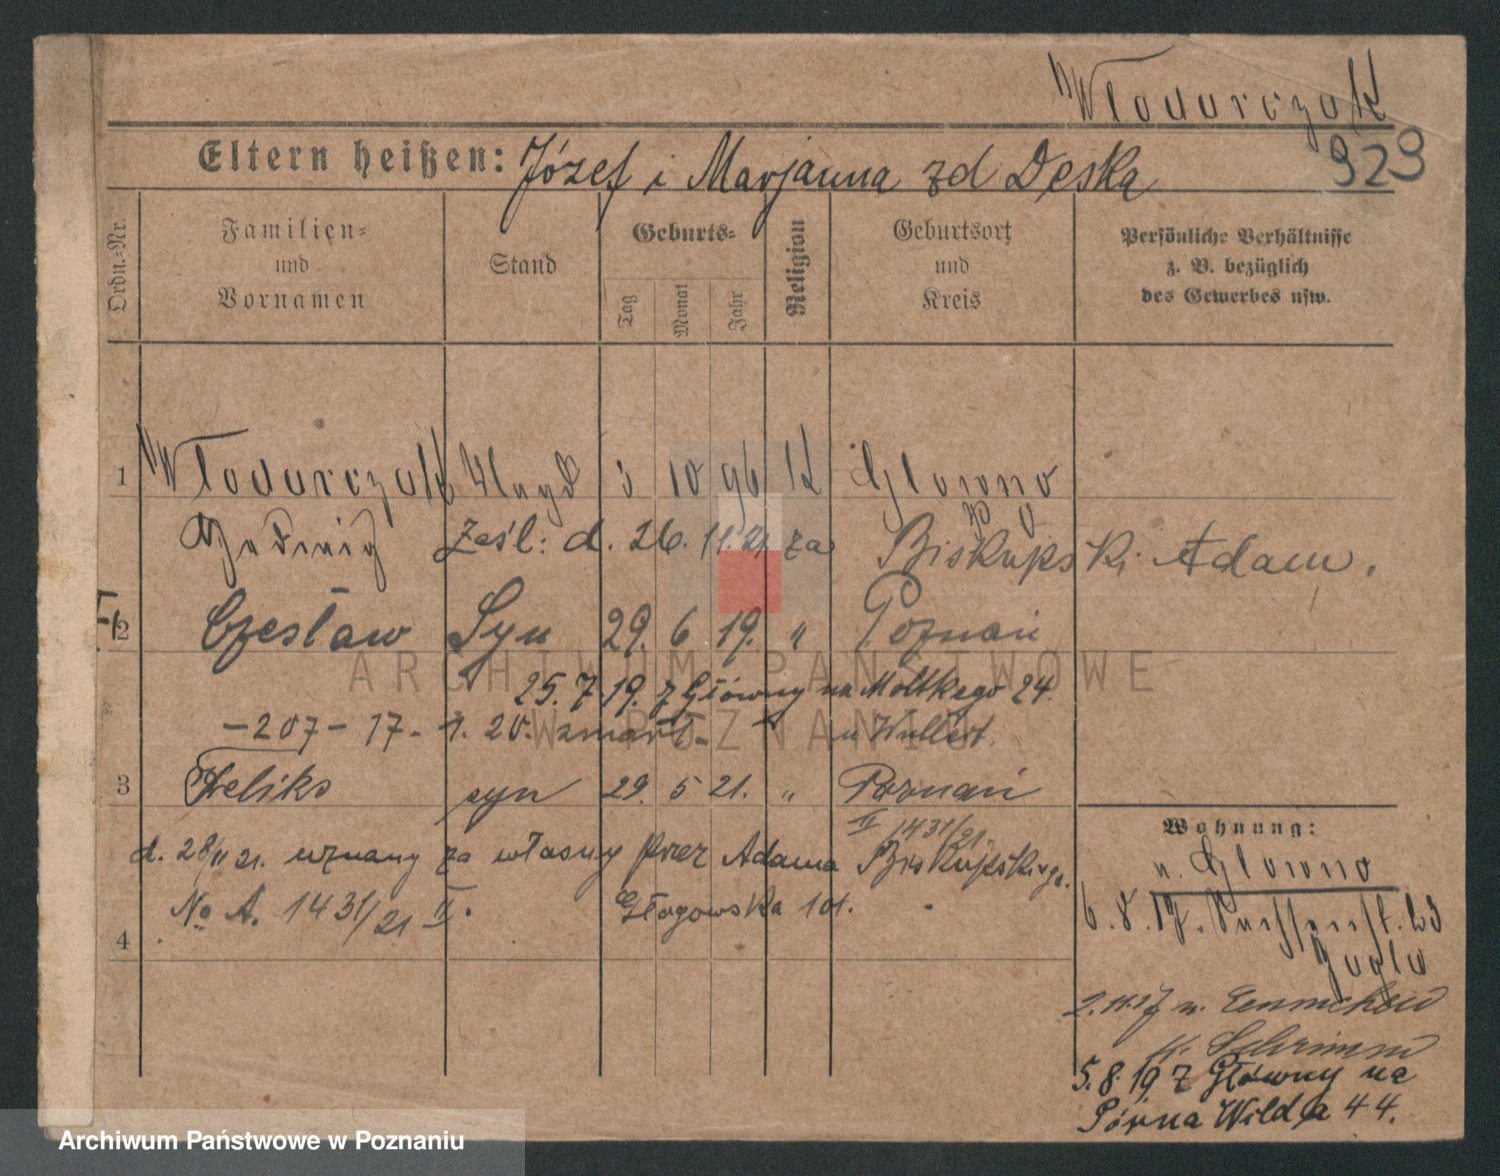 Włodarczak
Eltern heißen: Józef i Marjanna zd Deska
929
Ordn.-Nr.
Familien-
und
Vornamen
Stand
Geburts-
Tag
Monat
Jahr
Religion
Geburtsort
und
Kreis
Persönliche Verhältnisse
z. B. bezüglich
des Gewerbes usw.
1 Włodarczak Magd 3 10 96 K Glowno
Hedwig Zaśl: d. 26. 11. 21 za Biskupski Adam.
2 Czesław Syn 29. 6 19. " Poznań
25. 7 19. z Główny na Moltkego 24.
-207- 17. 1. 20. zmarł.
3 Feliks syn 29. 5 21. " Poznań
II 1431/21.
d. 28/11 21. uznany za własny przez Adama Biskupskiego.
No A. 1431/21 II. Głogowska 101.
4
Wohnung:
n. Glowno
6. 8. 17.
2. 11. 17 n.
n. Schrimm
5. 8. 19 z Główny na
Górna Wilda 44.
ARCHIWUM PAŃSTWOWE
W POZNANIU
Archiwum Państwowe w Poznaniu